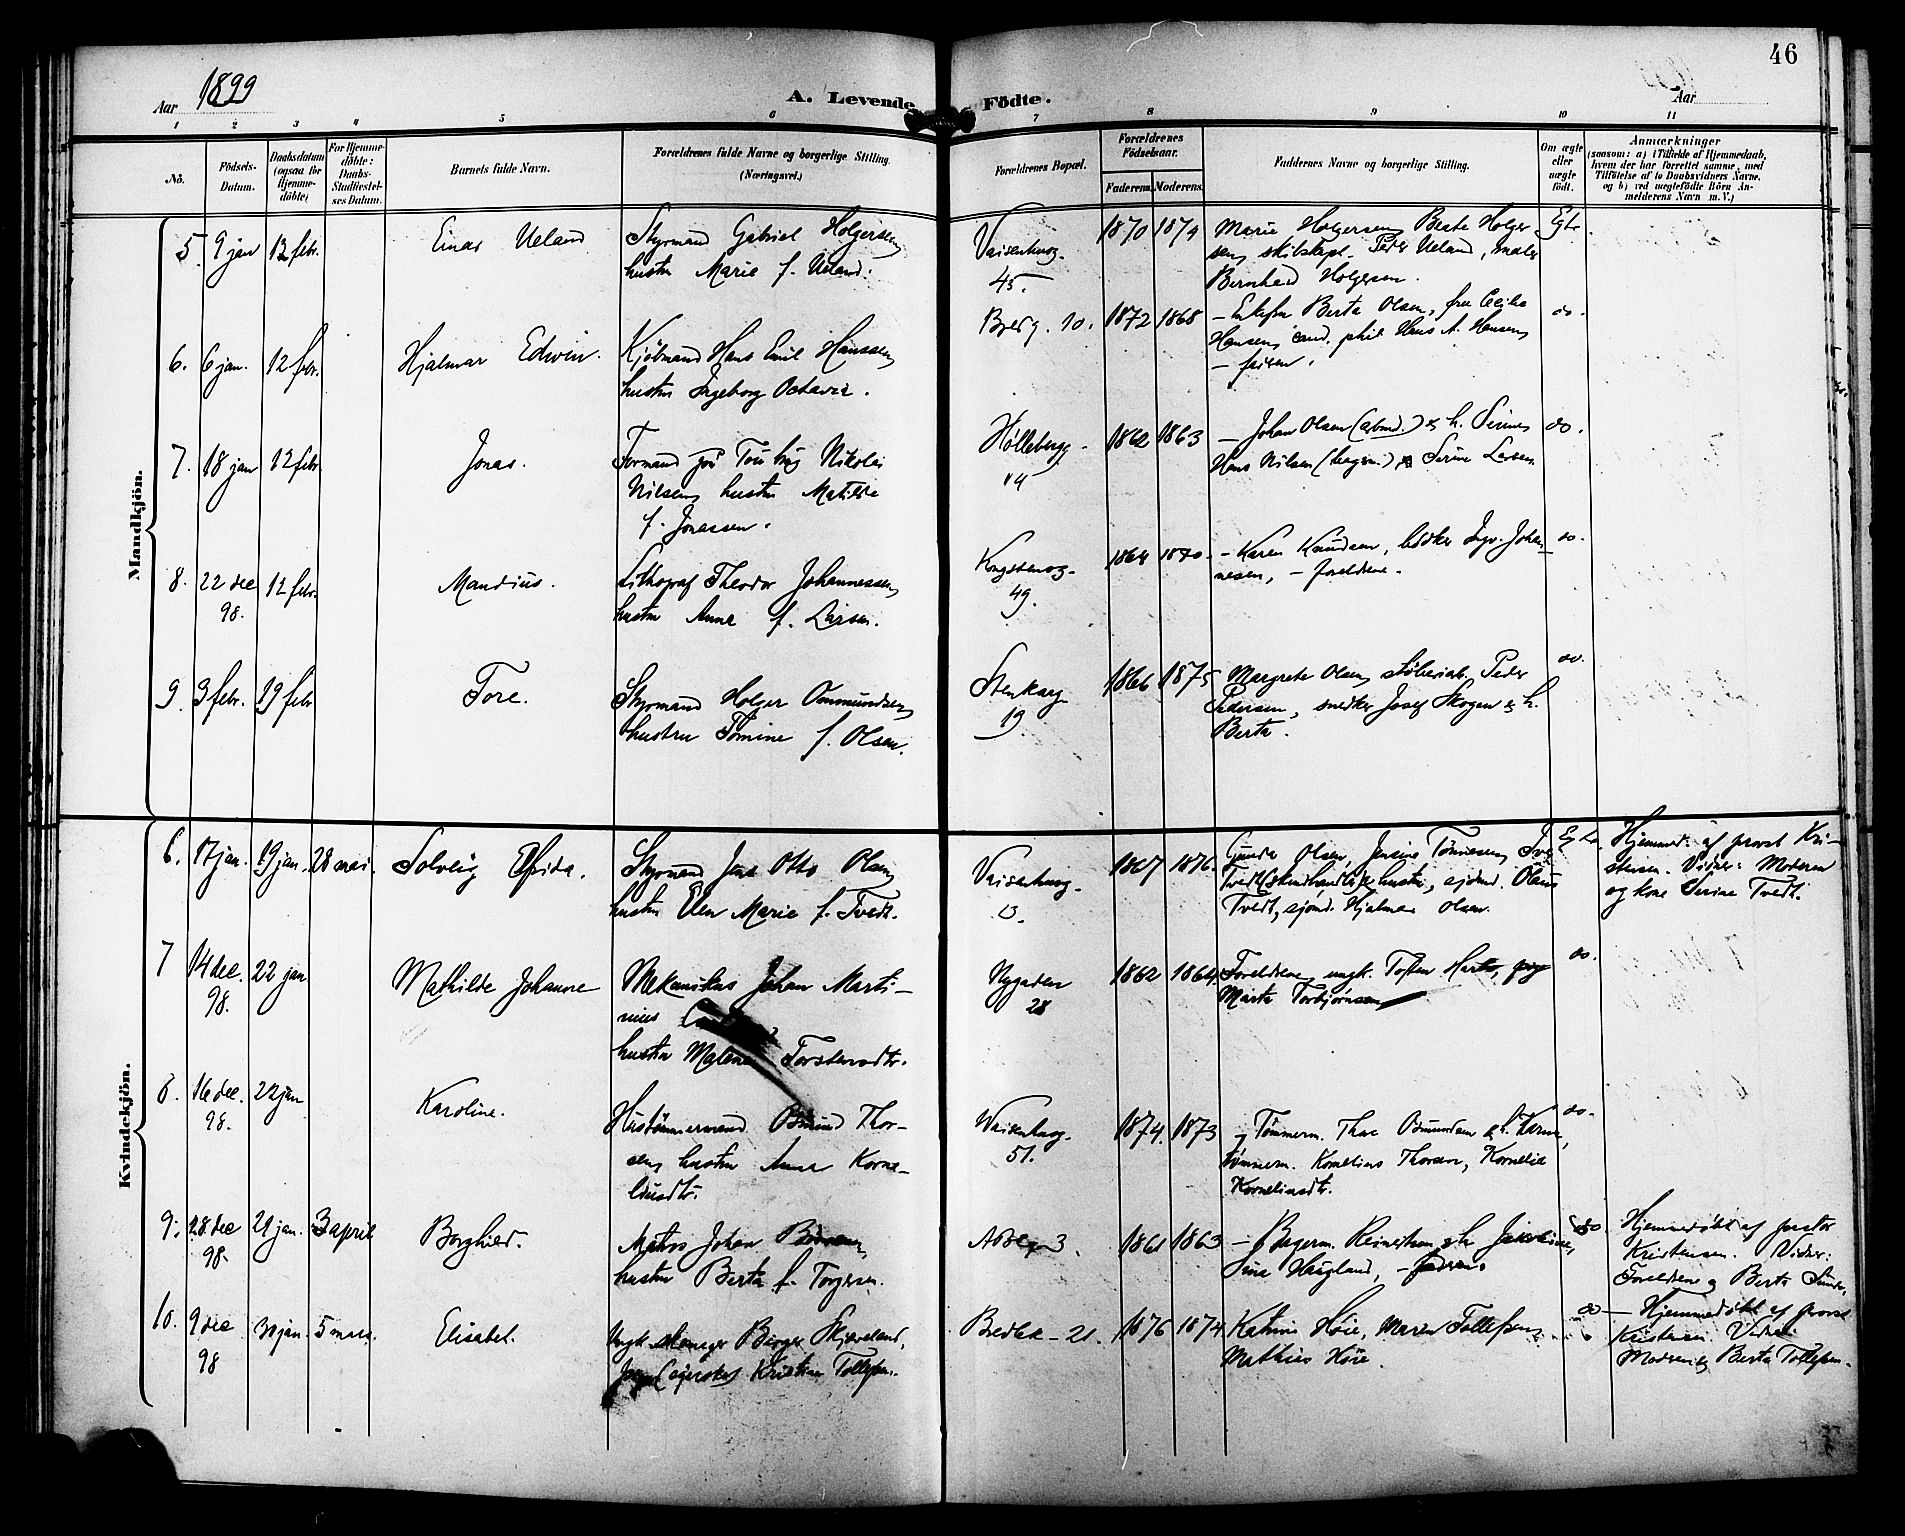 46
Aar 1899
A. Levende Födte.
Aar
1 2 3 4 5 6 7 8 9 10 11
No.
Födsels-
Datum.
Daabsdatum
(ogsaa for
Hjemme-
döbte)
For Hjemme-
döbte:
Daabs-
Stadfæstel-
ses Datum.
Barnets fulde Navn.
Forældrenes fulde Navne og borgerlige Stilling.
(Næringsvei.)
Forældrenes Bopæl.
Forældrenes
Födselsaar.
Faderens. Moderens.
Faddernes Navne og borgerlige Stilling.
Om ægte
eller
uægte
födt.
Anmærkninger
(saasom: a) i Tilfælde af Hjemmedaab,
hvem der har forrettet samme, med
Tilföielse af to Daabsvidners Navne,
og b) ved uægtefödte Börn An-
melderens Navn m. V.)
Mandkjön.
5. 9 jan 12 febr. Einar Ueland
Styrmand Gabriel Holgersen
hustru Marie f. Ueland.
Vaisenhusg.
45.
1870 1874
Marie Holgersen, Beate Holger
sen, skibskapt. Peder Ueland, maler
Bernhard Holgersen.
Egte
6. 6 jan. 12 febr. Hjalmar Edwin.
Kjöbmand Hans Emil Hanssen
hustru Ingeborg Octavia.
Bredg. 10.
1872 1868
- Enkefru Berta Olsen, fru Cecilia
Hansen, cand. phil Hans A. Hansen
- faderen.
do.
7. 18 jan 12 febr Jonas.
Formand Nikolai
Nilsen, hustru Matilde
f. Jonassen.
Hölleberg
14
1862 1863
- Johan Olsen (arbmd.) og h. Serine
Hans Nilsen Serine Larsen
do.
8. 22 dec
98.
12 febr. Mandius.
Lithograf Theodor Johannessen
hustru Anne f. Larsen.
Kongstensg.
49.
1864 1870.
- Karen Knudsen, bödker Johan
nesen, - foreldrene.
do.
9. 3 febr. 19 febr Tore.
Styrmand Holger Ommundsen
hustru Tomine f. Olsen.
Stenkarg
19
1866 1875
- Margrete Olsen, Peder
Pedersen, snedker Josef Skogen og h.
Berta.
do.
Kvindekjön.
6. 17 jan. 19 jan. 28 mai. Solveig Elfrida.
Styrmand Jens Otto Olsen
hustru Elen Marie f. Tvedt.
Vaisenhusg.
13.
1867 1876.
Gunda Olsen, Jensine Tönnesen,
Tvedt hustru, sjömd. Olaus
Tvedt, sjömd. Hjalmar Olsen.
Egte.
Hjemmed. af provst Kri-
stensen. Vidner: Moderen
og kone Serine Tvedt.
7 14 dec.
98.
22 jan Mathilde Johanne
Mekanikus Johan Marti-
nius
hustru Malene Torstensdtr.
Nygaden
28
1862 1864.
Foreldrene, ungk. Tosten
Marta Torbjörnsen
do.
8. 16 dec.
98.
22 jan Karoline.
Hustömmermand Thor-
sen, hustru Anna Korne-
liusdtr.
Vaisenhusg.
51.
1874. 1873
- Tömmerm. Thore
tömmerm. Kornelius Thorsen, Kornelia
Korneliusdtr.
do.
9. 28 dec
98.
29 jan. 3 april Borghild.
Matros Johan
hustru Berta f. Torgersen.
3.
1861 1863
- Bagerm. Reinertsen
Haugland, - faderen.
do.
Hjemmedöbt af pastor
Kristensen. Vidner:
Foreldrene og Berta
10. 9 dec
98
30 jan. 5 mars. Elisabet.
Ungk. Börge Skjæveland,
Kristine Tollefsen.
Bredbk - 21.
1876 1874.
Katrine Höie, Maren Tollefsen,
Mathias Höie.
do
- Hjemmedöbt af provst
Kristensen. Vidner:
Moderen og Berta Tollefsen.